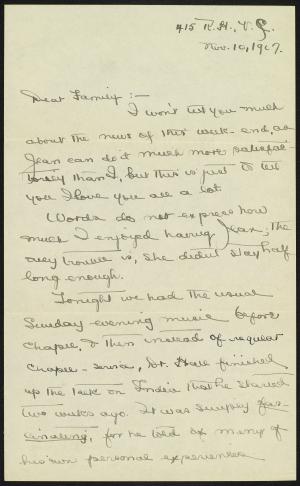 415 R.H., V.C.
Nov. 10, 1907.
Dear Family:—
I won't tell you much
about the news of this week-end, as
Jean can do it much more satisfac-
torily than I, but this is just to tell
you I love you all a lot.
Words do not express how
much I enjoyed having Jean; the
only trouble is, she didn't stay half
long enough.
Tonight we had the usual
Sunday evening music before
Chapel, & then instead of regular
Chapel-service, Dr. Hall finished
up the talk on India that he started
two weeks ago. It was simply fas-
cinating, for he told so many of
his own personal experiences